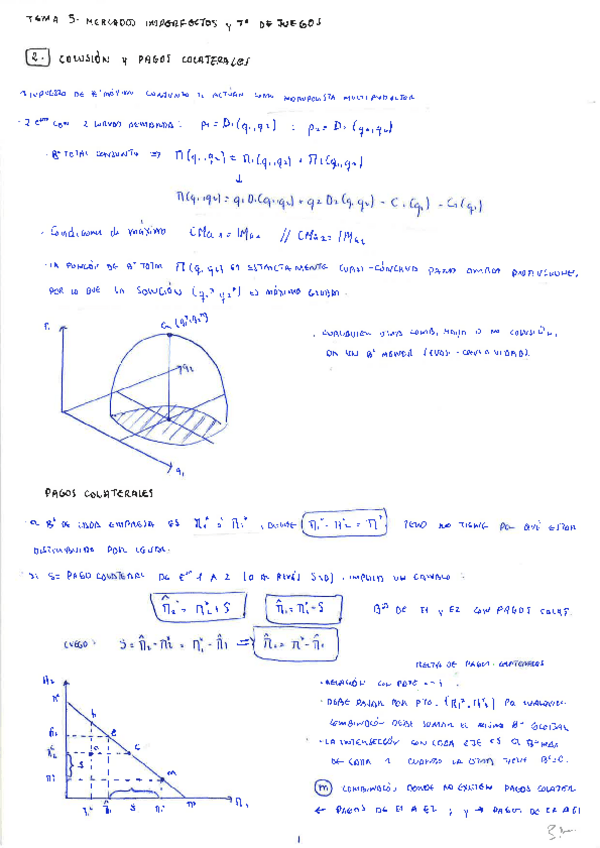 TEMA 5. MERCADOS IMPERFECTOS y Tª DE JUEGOS
2. COLUSIÓN y PAGOS COLATERALES
Bº MÁXIMO CONJUNTO SI ACTÚAN COMO MONOPOLISTA MULTIPRODUCTOR
CON 2 CURVAS DEMANDA: p1 = D1(q1,q2) ; p2 = D2(q1,q2)
· Bº TOTAL CONJUNTO ⇒ Π(q1,q2) = Π1(q1,q2) + Π2(q1,q2)
↓
Π(q1,q2) = q1 D1(q1,q2) + q2 D2(q1,q2) - C1(q1) - C2(q2)
· Condiciones de máximo CMa1 = IMa1 // CMa2 = IMa2
· LA FUNCIÓN DE Bº TOTAL Π(q1,q2) ES ESTRICTAMENTE CUASI-CÓNCAVA PARA AMBAS
POR LO QUE LA SOLUCIÓN (q1*,q2*) ES MÁXIMO GLOBAL.
G (q1*,q2*)
· CUALQUIER OTRA COMB, BAJO O NO COLUSIÓN,
DA UN Bº MENOR
q2
q1
PAGOS COLATERALES
Bº DE CADA EMPRESA ES Π1* ó Π2*, DONDE PERO NO TIENE POR QUÉ ESTAR
DISTRIBUIDO POR IGUAL.
· SI S = PAGO COLATERAL DE 1 A 2 (O AL REVÉS S<0). IMPLICA UN CAMBIO:
Π̂2 = Π2* + S Π̂1 = Π1* - S Bº DE E1 y E2 CON PAGOS COLAT.
LUEGO: S = Π̂2 - Π2* = Π1* - Π̂1 ⇒ Π̂2 = Π* - Π̂1
RECTA DE PAGOS COLATERALES
· RELACIÓN CON PDTE = -1.
· DEBE PASAR POR PTO. (Π1*, Π2*) PQ CUALQUIER
COMBINACIÓN DEBE SUMAR EL MISMO Bº GLOBAL
· LA INTERSECCIÓN CON CADA EJE ES EL Bº MAX
DE CADA 1 CUANDO LA OTRA TIENE Bº=0.
m COMBINACIÓN DONDE NO EXISTEN PAGOS COLATER
← PAGOS DE E1 A E2 ; y → PAGOS DE E2 A E1
h
e
c
m
S
Π1
1